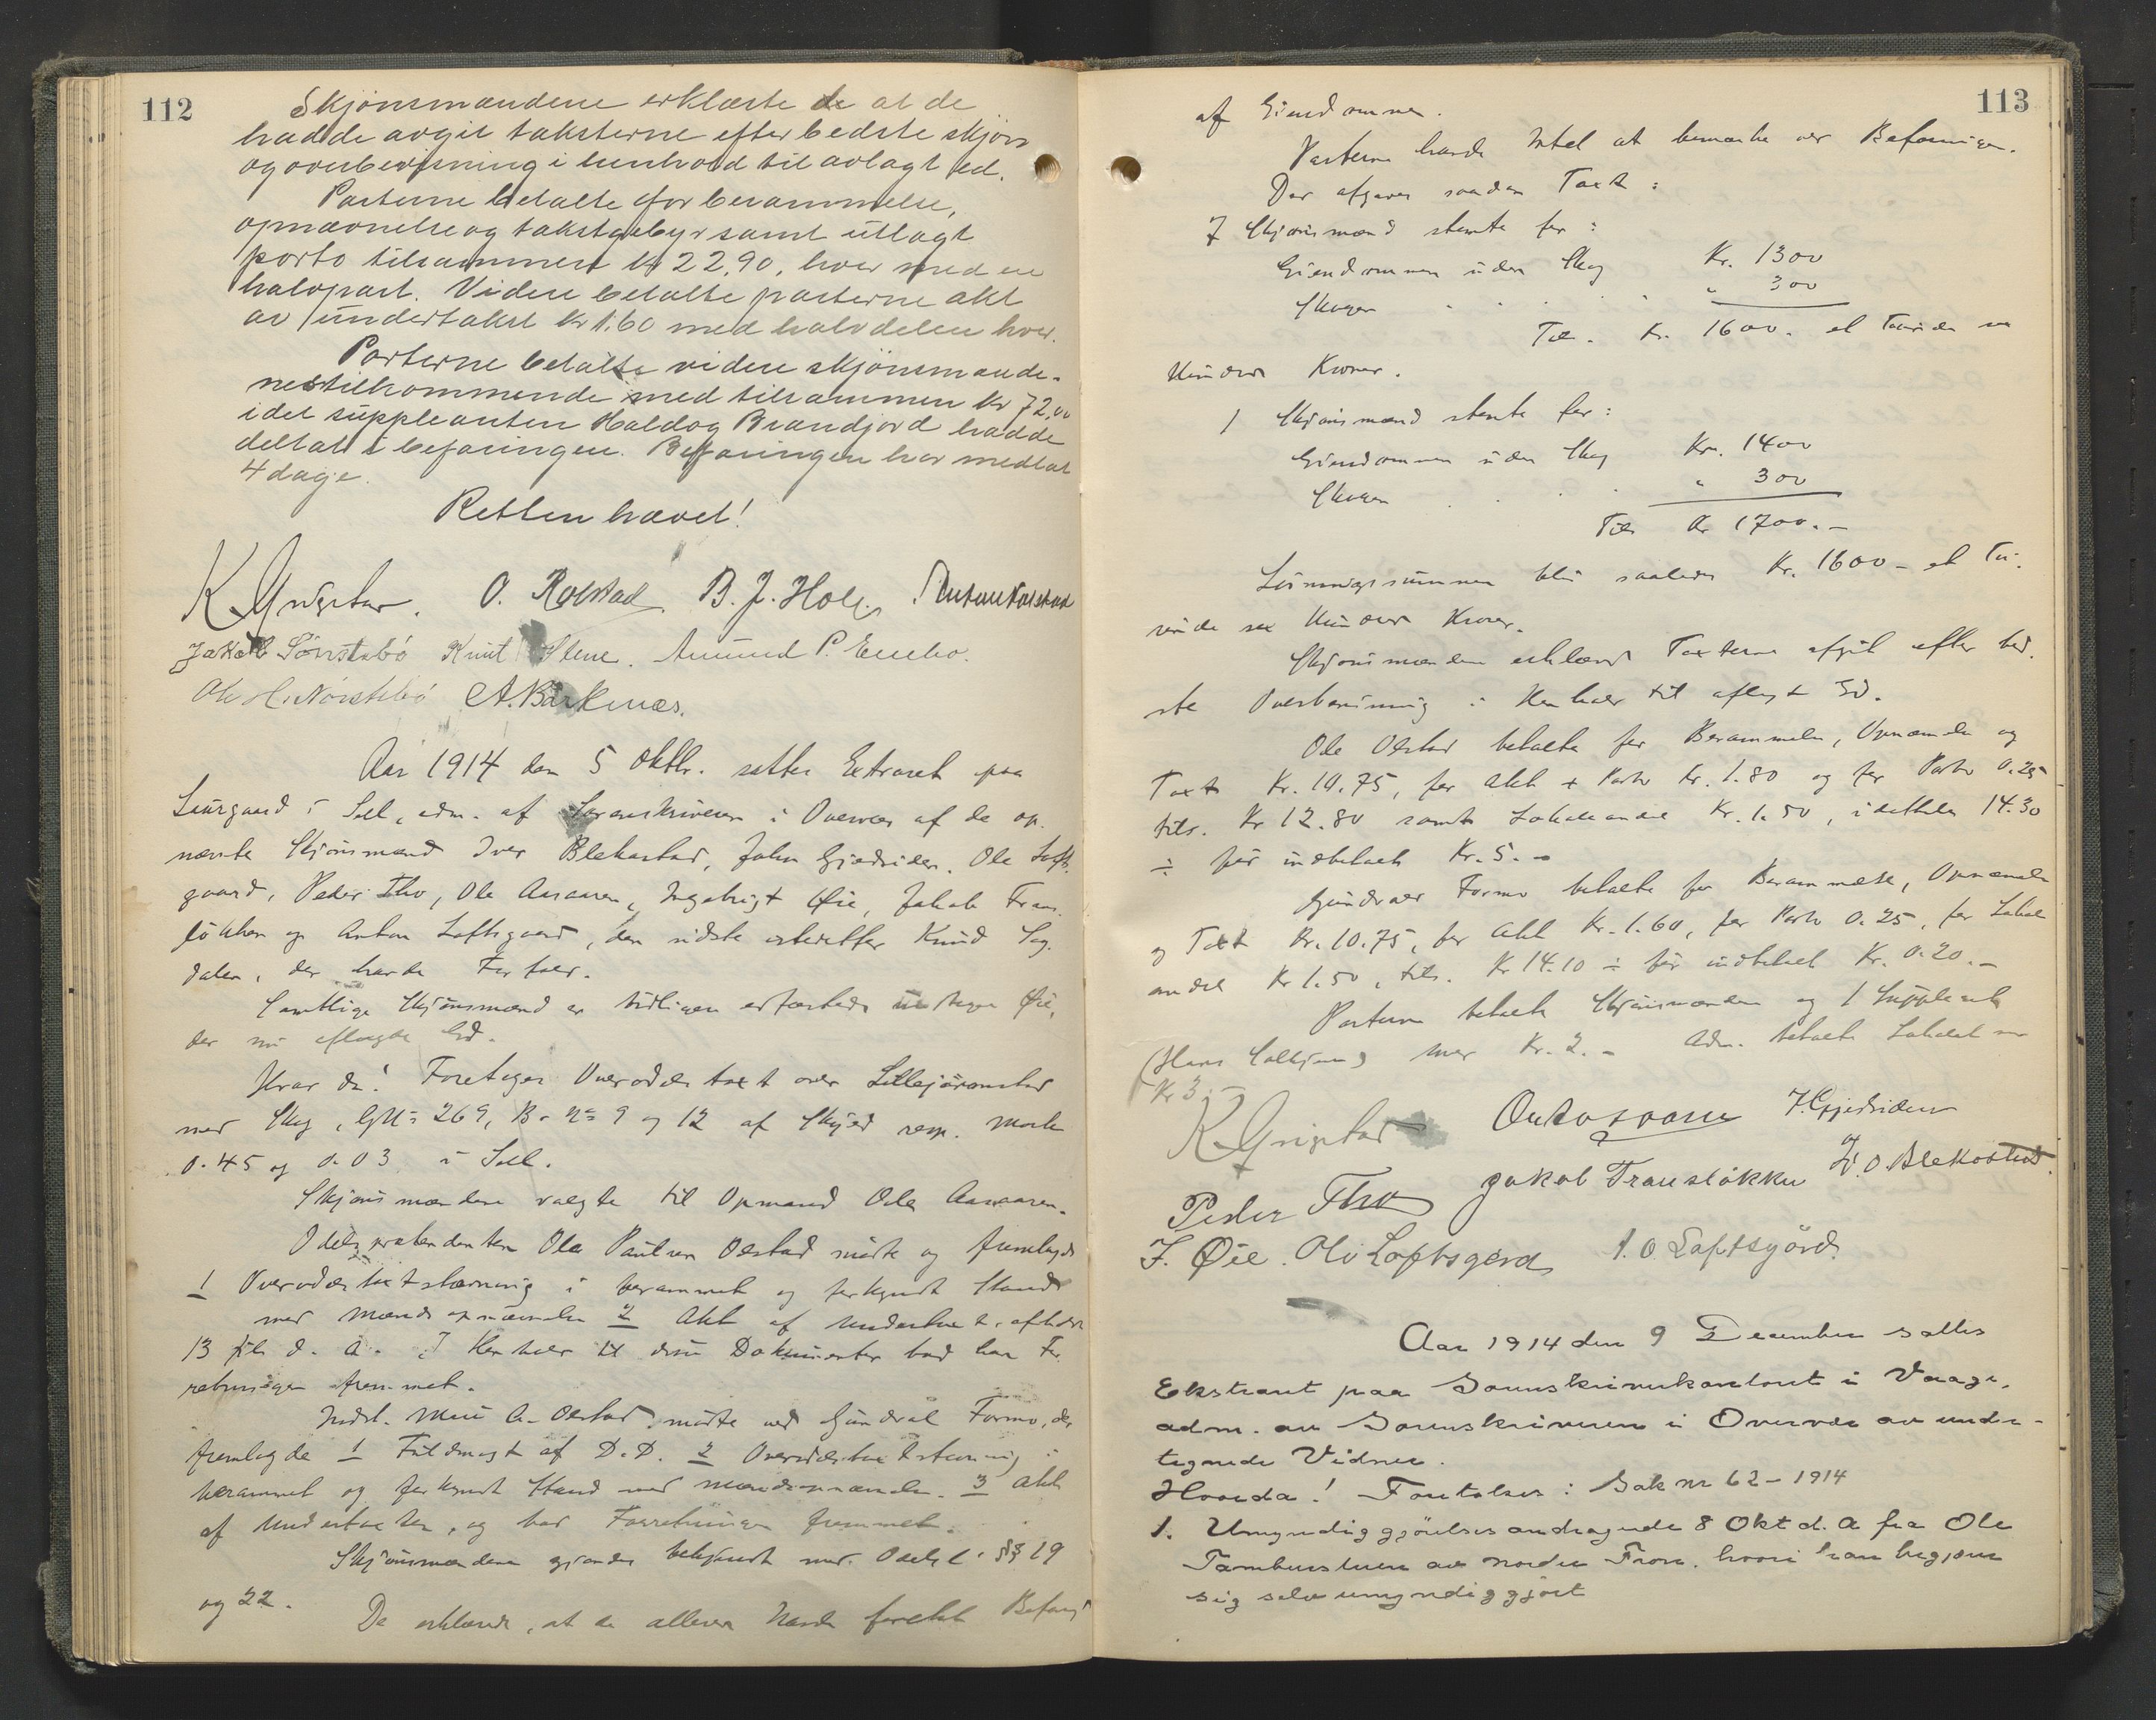 112
Skjønsmændene erklærte de at de
hadde avgit taksterne efter bedste skjøn
og overbevisning i henhold til avlagt ed.
Parterne betalte for berammelse,
opnævnelse og takstgebyr samt utlagt
porto tilsammen kr 22,90, hver med en
halvpart. Videre betalte parterne akt
av undertakst kr 1.60 med halvdelen hver.
Parterne betalte videre skjønsmænde-
nes tilkommende med tilsammen kr 72,00
idet suppleanten Haldog Brandjord hadde
deltat i befaringen. Befaringen har medtat
4 dage.
Retten hævet!
O. Rolstad B. J. Hole
Jakob Sønstebø Knut Stene. Amund P.
Ole H. Nørstebø A. Barknæs.
Aar 1914 den 5 Oktbr. sattes Extraret paa
Laurgaard i Sell, adm. af Sorenskriveren i Overvær af de op-
nævnte Skjønsmænd Iver Blekastad, John Gjedsiden, Ole Lofts-
gaard, Peder Tho, Ole Aasaaren, Ingebrigt Øie, Jakob Trans-
løkken og Anton Loftsgaard, den sidste istedetfor Knud Sag-
dalen, der havde Forfald.
Samtlige Skjønsmænd er tidligere edfæstede undtagen Øie,
der nu aflagde Ed.
Hvor da! Foretoges Overodelstaxt over
med Skog, GN= 269, B. N= 9 og 12 af Skyld resp. Mark
0.45 og 0.03 i Sell.
Skjønsmændene valgte til Opmand Ole Aasaaren.
Odelsprætendenten Ole Paulsen Olstad mødte og fremlagde
1 Overodelstaxtstævning i berammet og forkyndt Stand
med Mændsopnævnelse 2 Akt af Undertaxt, afholdt
13 d. A. I Henhold til disse Dokumenter bad han For-
retningen fremmet.
Indst. A. Olstad mødte ved Gundval Formo, der
fremlagde 1 Fuldmagt af D.D. 2 Overodelstaxtstævning i
berammet og forkyndt Stand med Mændsopnævnelse. 3 Akt
af Undertaxten, og bad Forretningen fremmet.
Skjønsmændene gjordes bekjendt med Odelsl. §§ 19
og 22.
De erklærede, at de allerede havde foretat Befaring
113
af Eiendommen.
Parterne havde Intet at bemærke ved Befaringen.
Der afgaves saadan Taxt:
7 Skjønsmænd stemte for:
Eiendommen uden Skog Kr. 1300
Skogen " 300
Tils. Kr. 1600. et Tusinde sex
Hundrede Kroner.
1 Skjønsmand stemte for:
Eiendommen uden Skog Kr. 1400
Skogen " 300
Tils Kr 1700.-
Løsningssummen blir saaledes Kr. 1600 - et Tu-
sinde sex Hundrede Kroner.
Skjønsmændene erklærede Taxterne afgit efter bed-
ste Overbevisning i Henhold til aflagt Ed.
Ole Olstad betalte for Berammelse, Opnævnelse og
Taxt Kr. 10.75, for Akt + Porto Kr. 1.80 og for Porto 0.25
tils. Kr 12.80 samt Lokaleandel Kr. 1.50, idethele 14.30
÷ før indbetalt Kr. 5.-
Gundval Formo betalte for Berammelse, Opnævnelse
og Taxt Kr. 10.75, for Akt Kr. 1.60, for Porto 0.25, for Lokale-
andel Kr 1.50, tils. Kr 14.10 ÷ før indbetalt Kr. 0.20.-
Parterne betalte Skjønsmændene og 1 Suppleant
(Hans ) hver Kr. 2.- Adm. betalte Lokalet med
Kr 3.-
J. Gjedsiden
Peder Tho Jakob Transløkken I. O. Blekastad
I. Øie. Ole Loftsgård A. O. Loftsgård
Aar 1914 den 9 December sattes
Ekstraret paa Sorenskriverkontoret i Vaage,
adm. av Sorenskriveren i Overvær av under-
tegnede Vidner.
Hvorda! Foretokes: Sak nr 62 - 1914
1. Umyndiggjørelsesandragende 8 Okt d. A fra Ole
av nordre Fron. hvori han begjærer
sig selv umyndiggjort